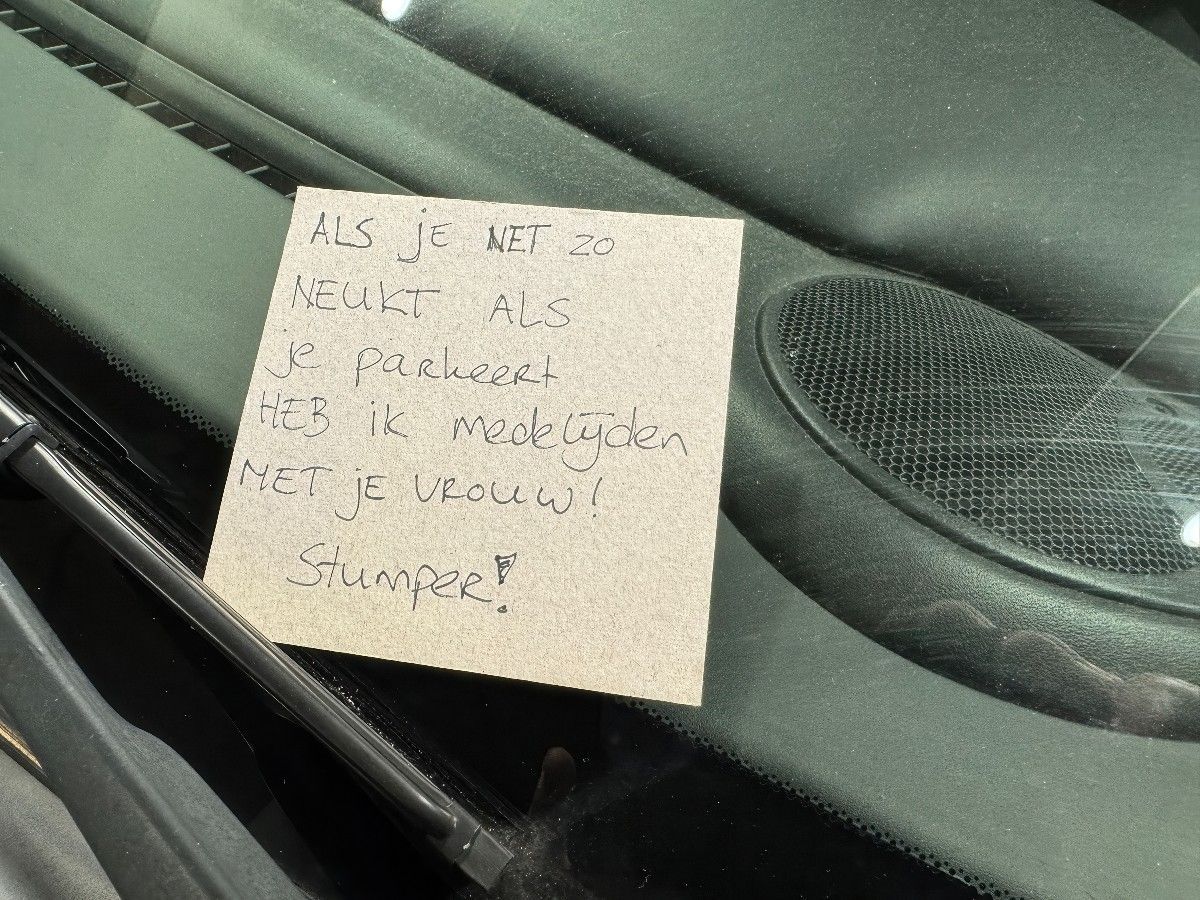 ALS jE NET ZO
NEUKT ALS
je parkeert
HEB ik medelijden
MET jE VROUW!
Stumper!